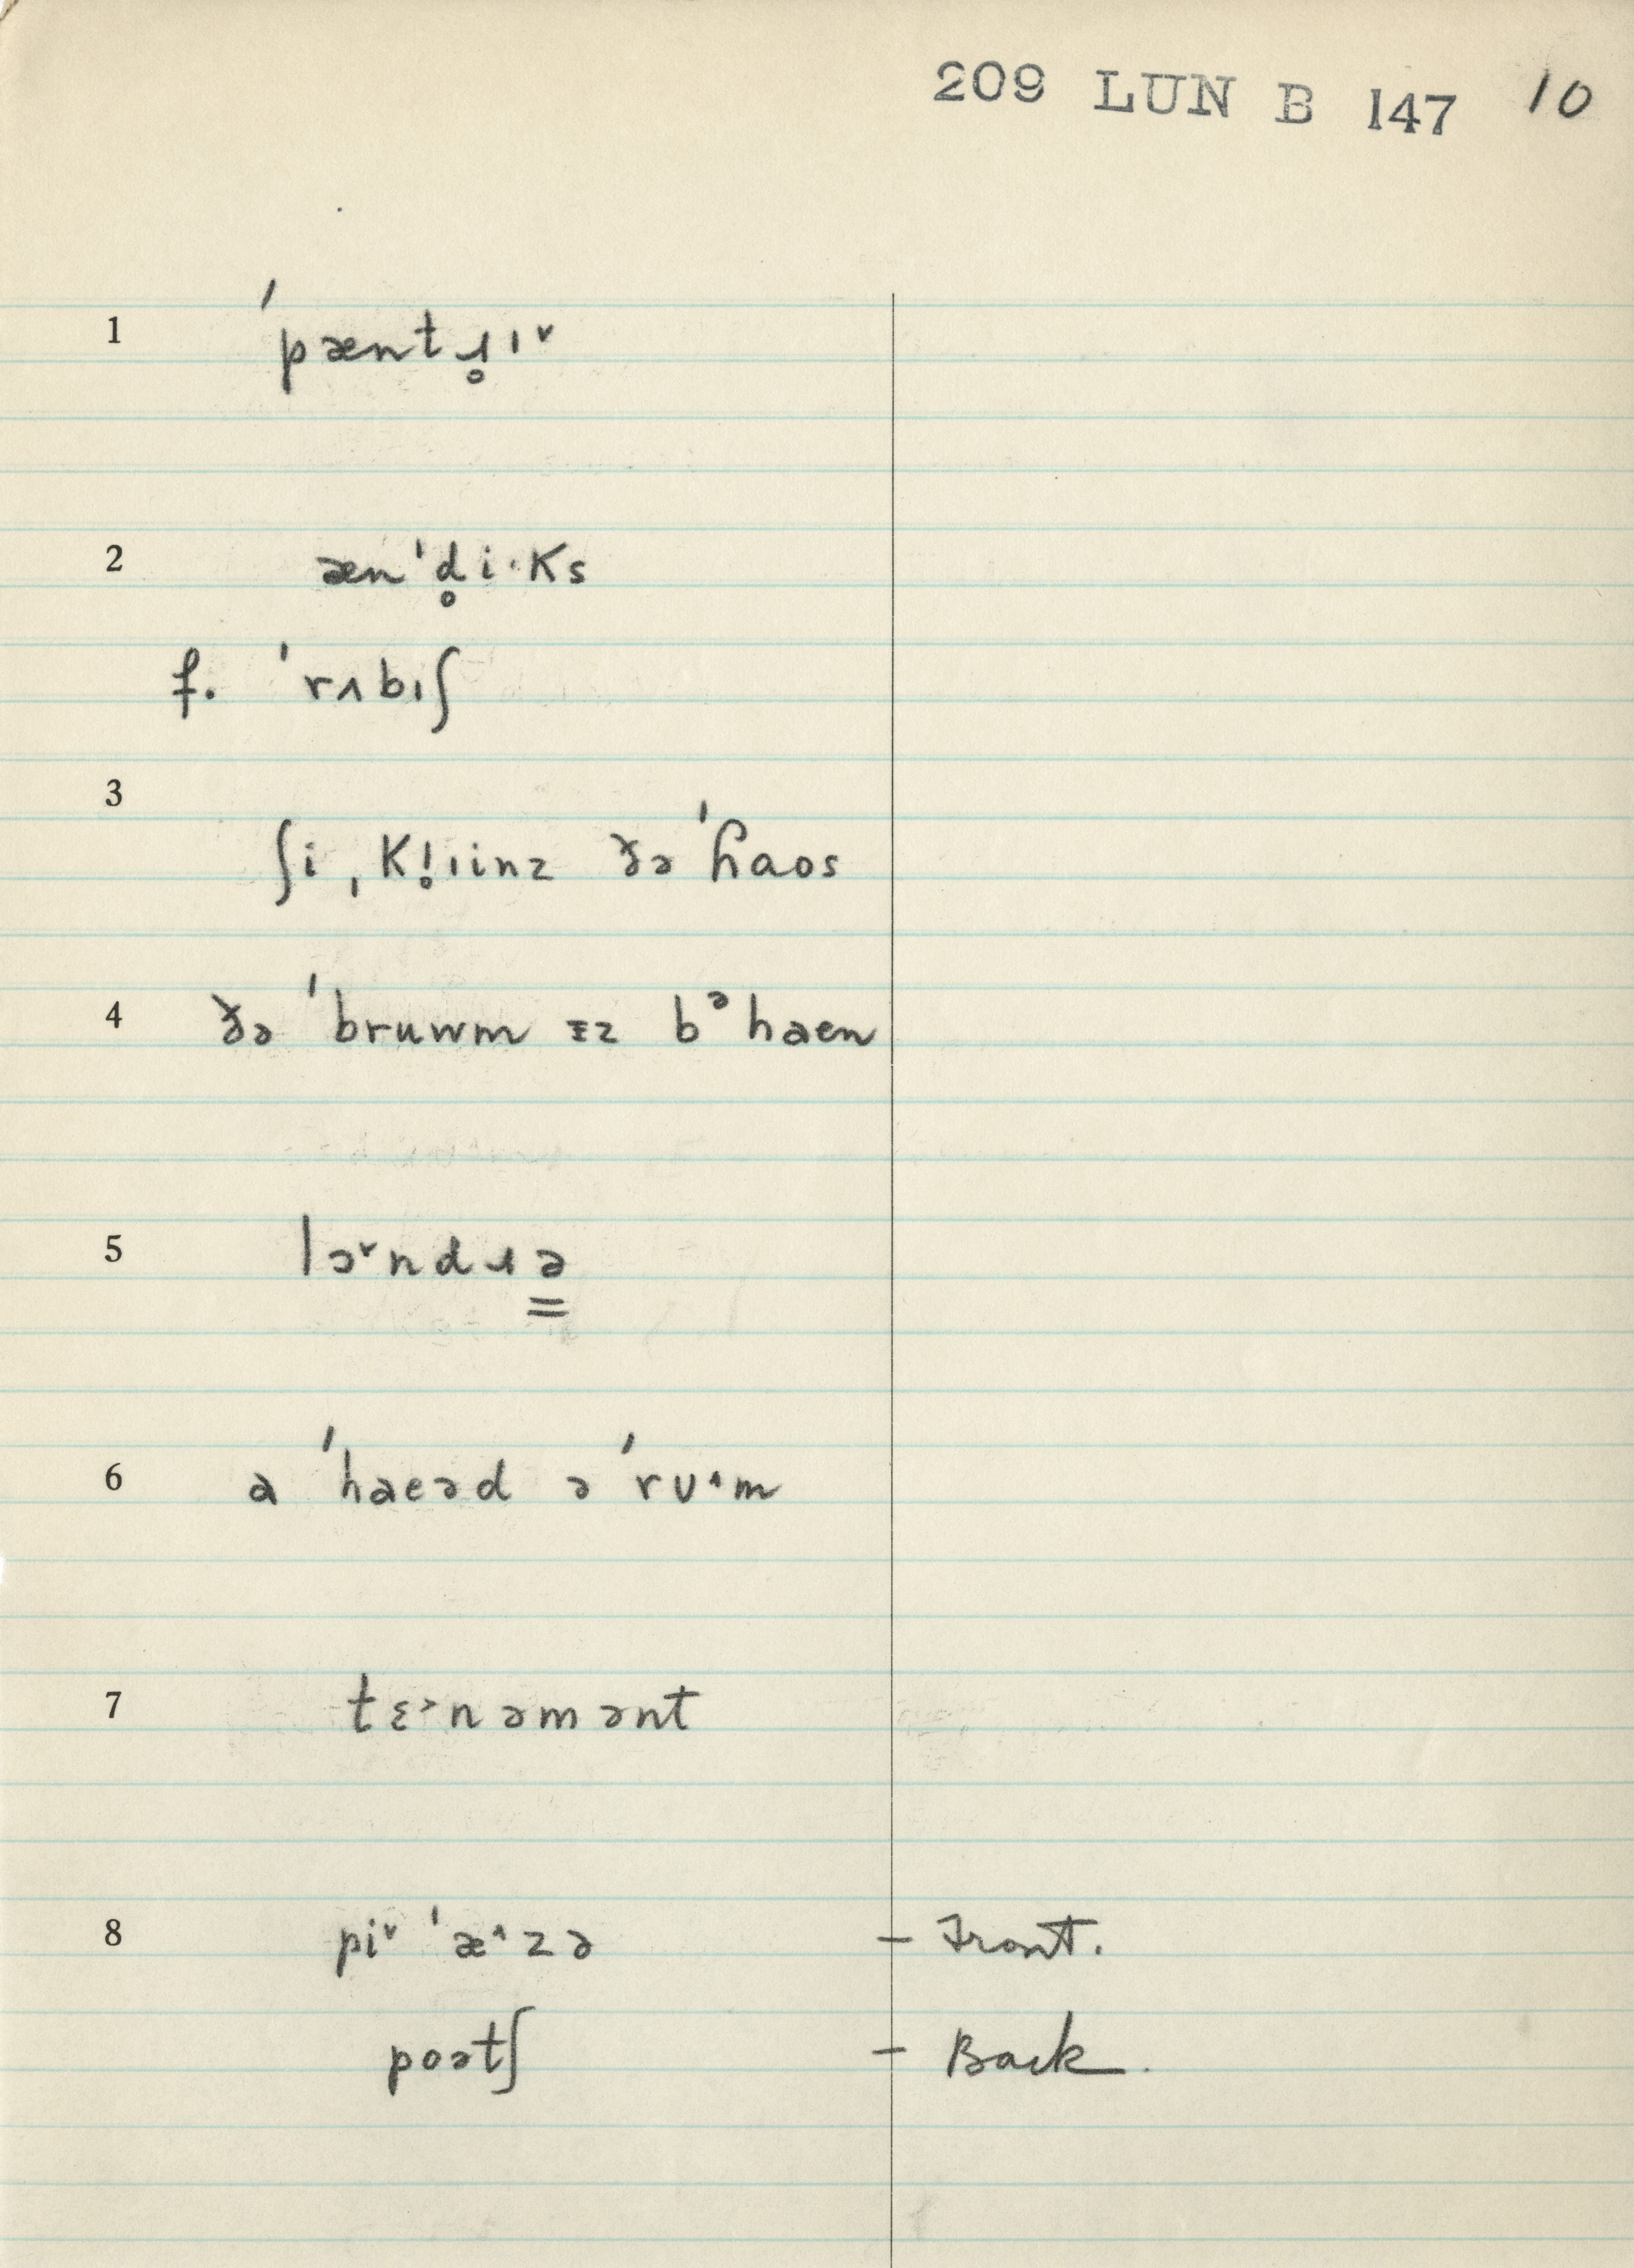 209 LUN B 147 10
1 ˈpæntɹ̥ɪ˅
2 ænˈd̥i·ks
f. ˈrʌbɪʃ
3 ʃi ˌkl̥ɪinz ðə ˈɦaos
4 ðə ˈbruwm ɪz bᵊhaen
5 lɔ˅ndɹə̳
6 a ˈhaeəd ə ˈrʊ˄m
7 tɛ˃nəmənt
8 pi˅ˈæ˄zə – Front.
poətʃ – Back.